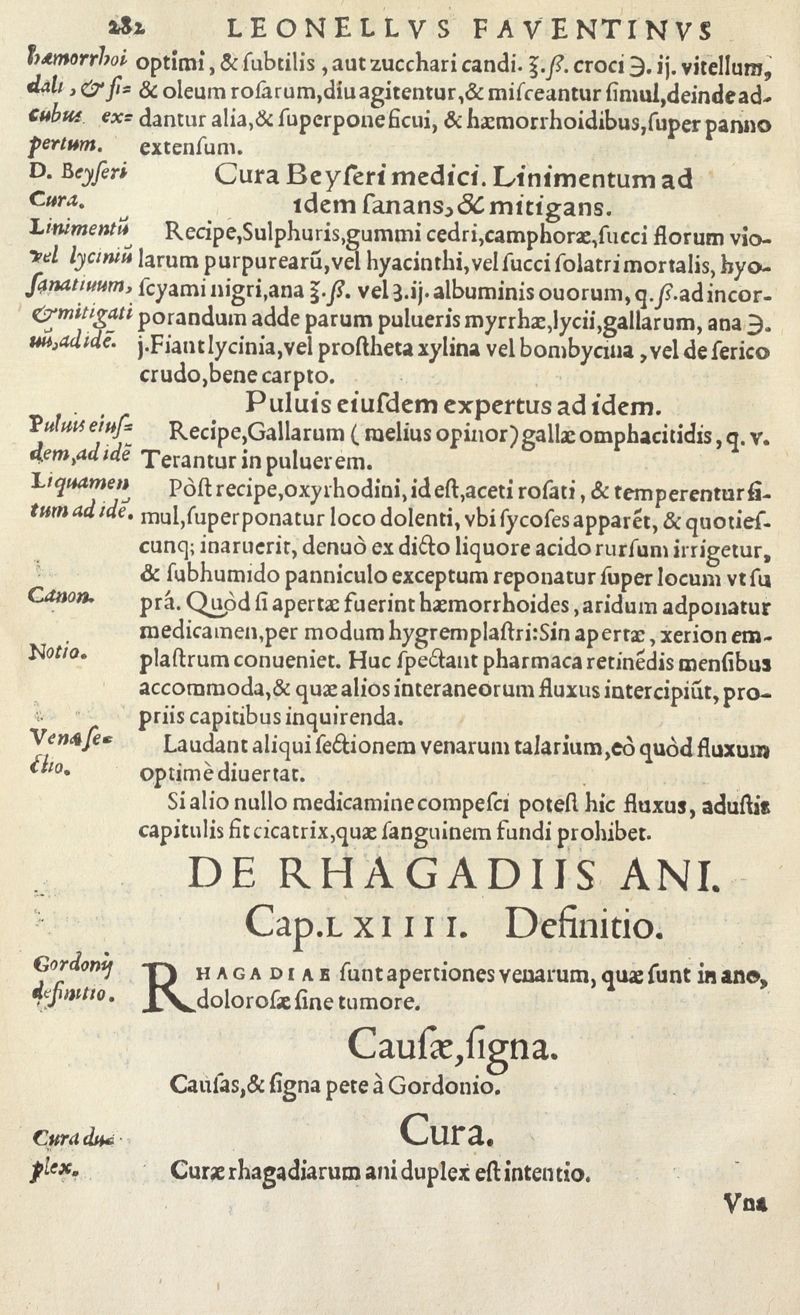 282 LEONELLVS FAVENTINVS
hæmorrhoi
dali, & fi=
cubus ex=
pertum.
optimi, & ſubtilis, aut zucchari candi. ʒ.ß. croci ℈. ij. vitellum,
& oleum roſarum, diu agitentur, & miſceantur ſimul, deinde ad-
dantur alia, & ſuperpone ficui, & hæmorrhoidibus, ſuper panno
extenſum.
D. Beyſeri
Cura.
Cura Beyſeri medici. Linimentum ad
idem ſanans, & mitigans.
Linimentū
vel lyciniū
ſanatiuum,
& mitigati
uū, ad idē.
Recipe, Sulphuris, gummi cedri, camphoræ, ſucci florum vio-
larum purpurearū, vel hyacinthi, vel ſucci ſolatri mortalis, hyo-
ſcyami nigri, ana ℥.ß. vel ʒ.ij. albuminis ouorum, q.ß. ad incor-
porandum adde parum pulueris myrrhæ, lycii, gallarum, ana ℈.
j. Fiant lycinia, vel proſtheta xylina vel bombycina, vel de ſerico
crudo, bene carpto.
Puluis eiuſdem expertus ad idem.
Puluis eiuſ=
dem, ad idē
Recipe, Gallarum ( melius opinor) gallæ omphacitidis, q. v.
Terantur in puluerem.
Liquamen
tum ad idē.
Pòſt recipe, oxyrhodini, id eſt, aceti roſati, & temperentur ſi-
mul, ſuperponatur loco dolenti, vbi ſycoſes apparēt, & quotieſ-
cunq; inaruerit, denuò ex dicto liquore acido rurſum irrigetur,
& ſubhumido panniculo exceptum reponatur ſuper locum vt ſu
prá. Quòd ſi apertæ fuerint hæmorrhoides, aridum adponatur
medicamen, per modum hygremplaſtri: Sin apertæ, xerion em-
plaſtrum conueniet. Huc ſpectant pharmaca retinēdis menſibus
accommoda, & quæ alios interaneorum fluxus intercipiūt, pro-
priis capitibus inquirenda.
Canon.
Notio.
Venæ ſe=
ctio.
Laudant aliqui ſectionem venarum talarium, eò quòd fluxum
optimè diuertat.
Si alio nullo medicamine compeſci poteſt hic fluxus, aduſtis
capitulis fit cicatrix, quæ ſanguinem fundi prohibet.
DE RHAGADIIS ANI.
Cap. LXIIII. Definitio.
Gordonij
definitio.
RHAGADIAE ſunt apertiones venarum, quæ ſunt in ano,
doloroſæ ſine tumore.
Cauſæ, ſigna.
Cauſas, & ſigna pete à Gordonio.
Cura.
Cura du=
plex.
Curæ rhagadiarum ani duplex eſt intentio.
Vna